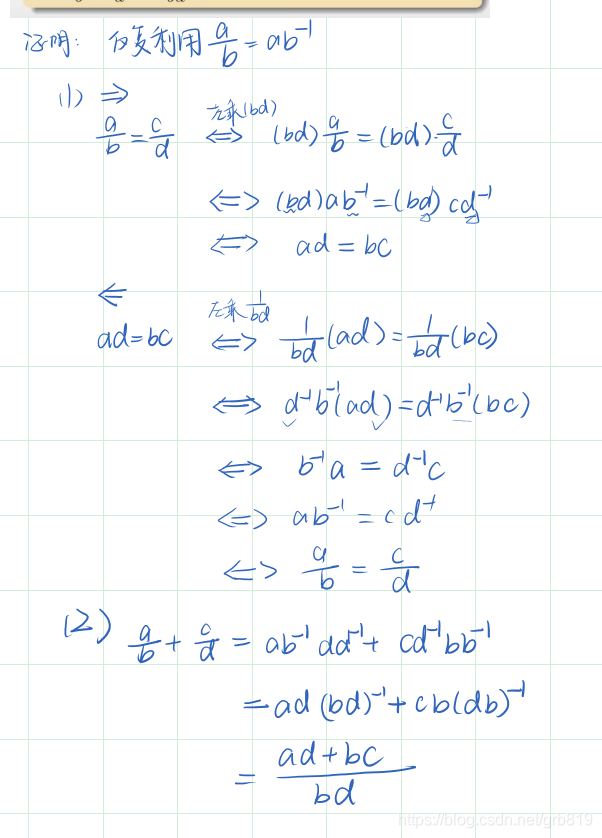 证明: 反复利用 a/b = ab⁻¹
(1) ⇒
a/b = c/d ⇔ 左乘(bd) (bd) a/b = (bd)·c/d
⇔ (bd)ab⁻¹ = (bd)cd⁻¹
⇔ ad = bc
⇐
ad = bc ⇔ 左乘 1/bd 1/bd (ad) = 1/bd (bc)
⇔ d⁻¹b⁻¹(ad) = d⁻¹b⁻¹(bc)
⇔ b⁻¹a = d⁻¹c
⇔ ab⁻¹ = cd⁻¹
⇔ a/b = c/d
(2) a/b + c/d = ab⁻¹dd⁻¹ + cd⁻¹bb⁻¹
= ad(bd)⁻¹ + cb(db)⁻¹
= ad+bc/bd
https://blog.csdn.net/grb819